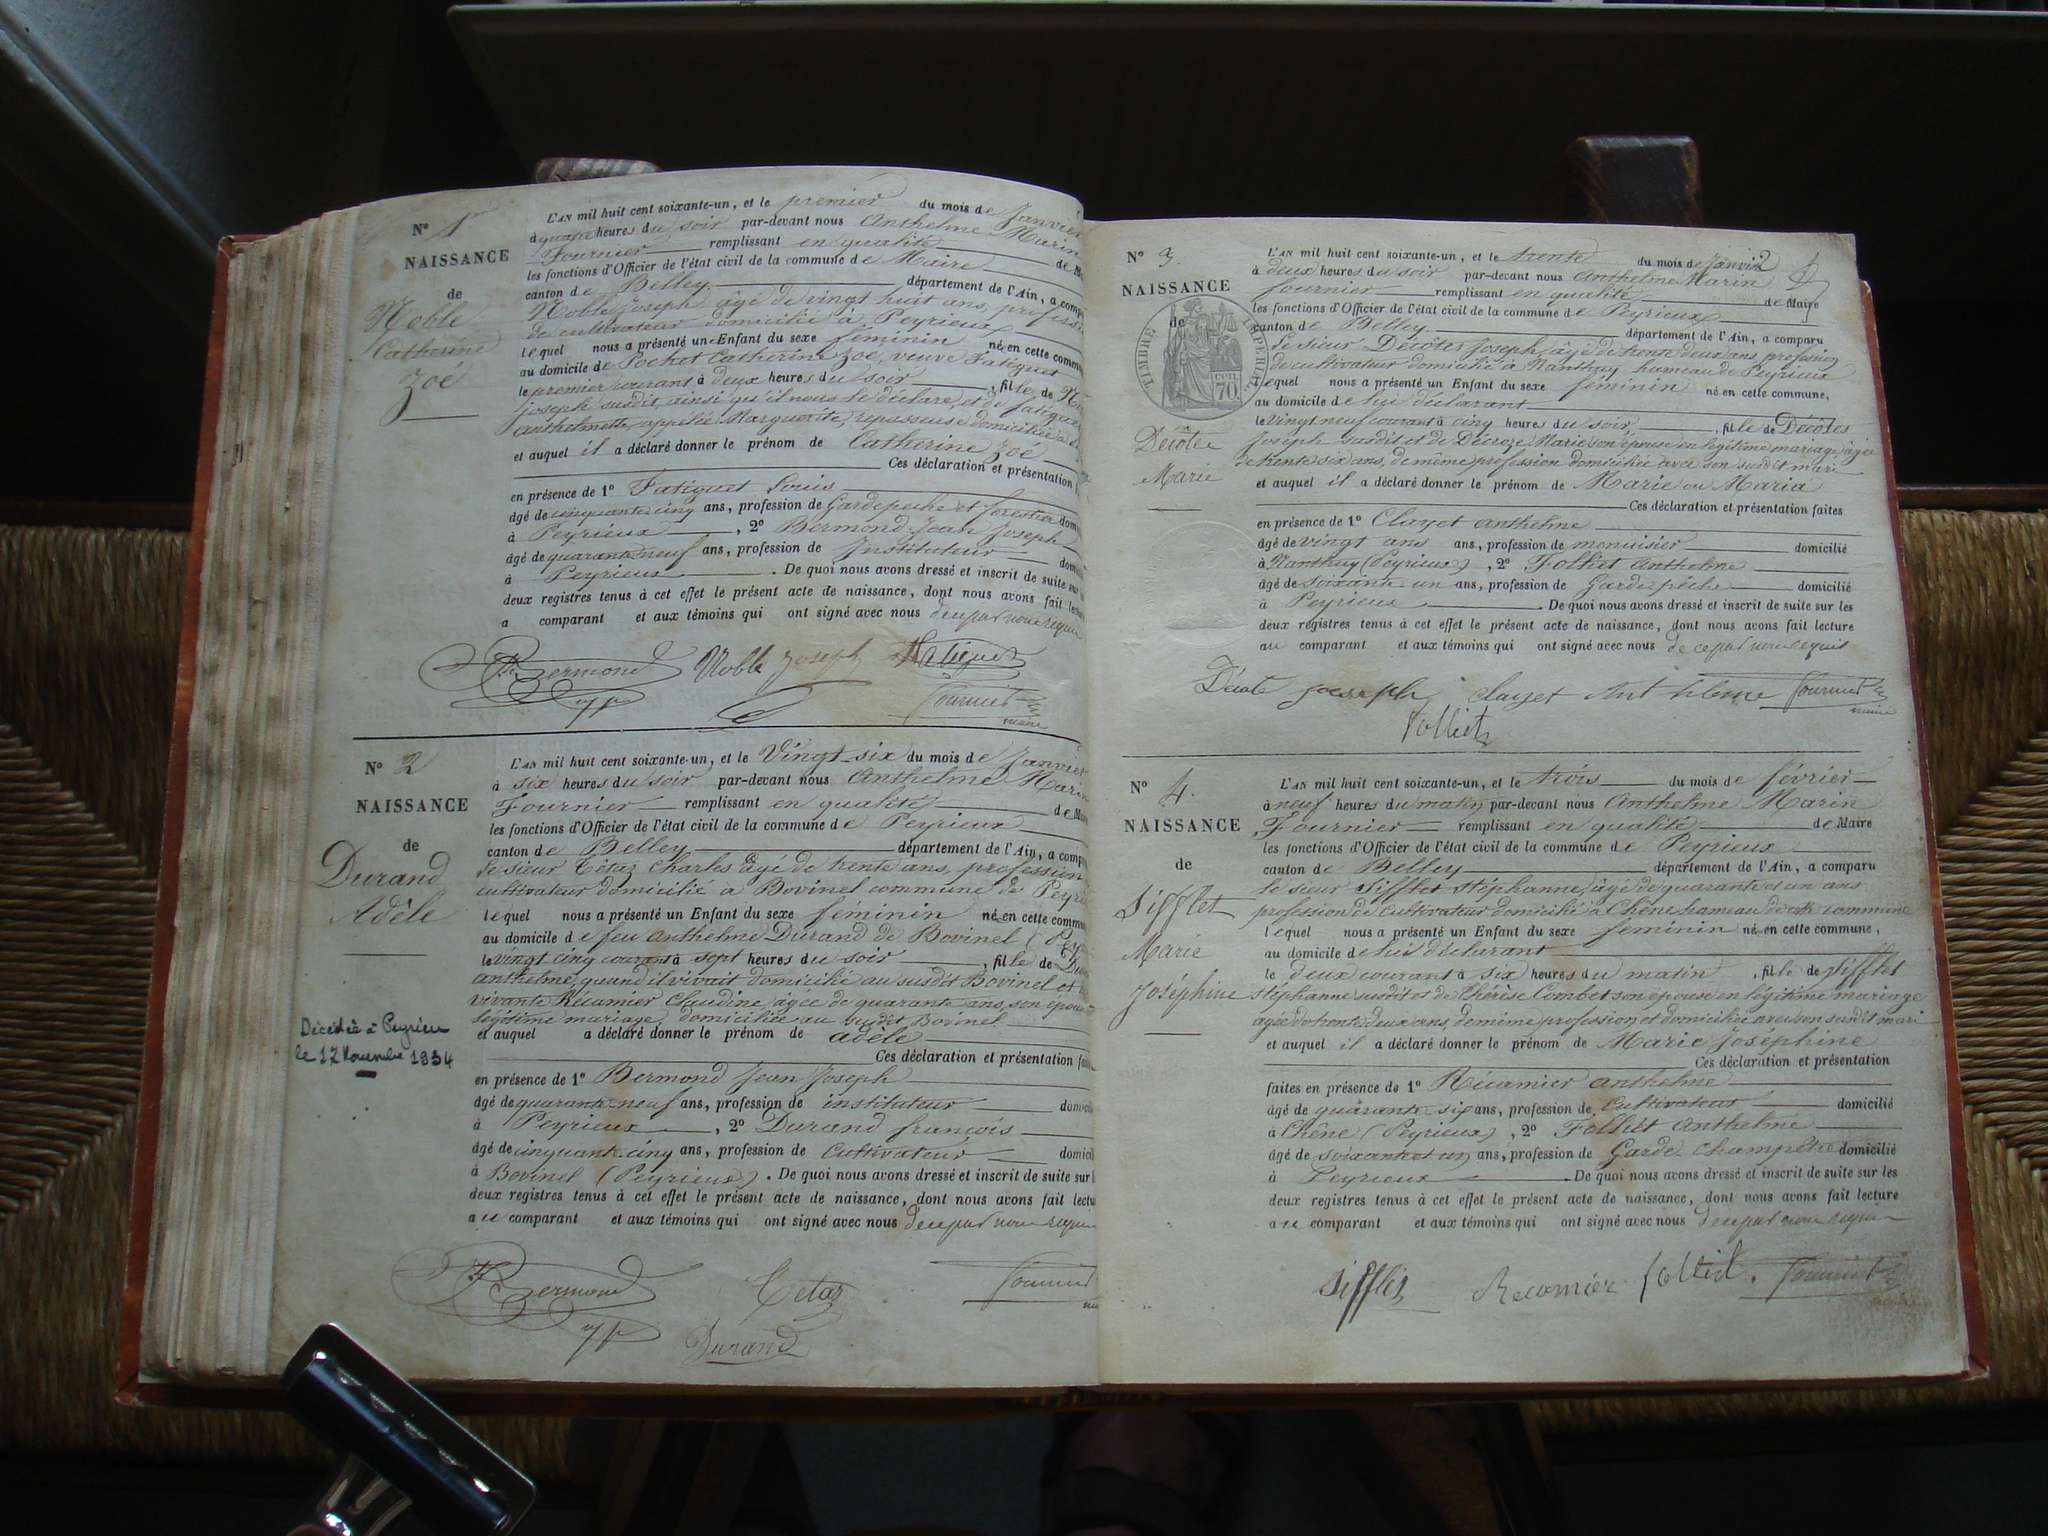 N° 1er
NAISSANCE
de
Noble
Catherine
Zoé
L'AN mil huit cent soixante-un, et le premier du mois de Janvier
à quatre heures du soir par-devant nous Anthelme Marin
Fournier remplissant en qualité de
les fonctions d'Officier de l'état civil de la commune de Maire
canton de Belley département de l'Ain, a
Noble Joseph âgé de vingt huit ans,
de cultivateur domicilié à Peyrieux
lequel nous a présenté un Enfant du sexe féminin né en cette
au domicile de Pochet Catherine Zoé, veuve Fatiguet
le premier courant à deux heures du soir, fille de
joseph susdit, ainsi qu'il nous le déclare, et de
anthelmette appelée Marguerite, repasseuse domiciliée à
et auquel il a déclaré donner le prénom de Catherine Zoé
Ces déclaration et présentation
en présence de 1° Fatiguet Louis
âgé de cinquante cinq ans, profession de Gardepeche et forestier
à Peyrieux, 2° Bermond Jean Joseph
âgé de quarante neuf ans, profession de Instituteur
à Peyrieux. De quoi nous avons dressé et inscrit de suite sur
deux registres tenus à cet effet le présent acte de naissance, dont nous avons fait lecture
a comparant et aux témoins qui ont signé avec nous de ce par nous requis
Bermond Noble Joseph Fatiguet
Fournier
maire
N° 2
NAISSANCE
de
Durand
Adèle
Décédée à Peyrieu
le 12 Novembre 1934
L'AN mil huit cent soixante-un, et le Vingt-six du mois de Janvier
à six heures du soir par-devant nous Anthelme Marin
Fournier remplissant en qualité de
les fonctions d'Officier de l'état civil de la commune de Peyrieux
canton de Belley département de l'Ain, a
le sieur Tétaz Charles âgé de trente ans, profession
cultivateur domicilié à Bovinel commune de
lequel nous a présenté un Enfant du sexe féminin né en cette
au domicile de feu Anthelme Durand de Bovinel
le vingt cinq courant à sept heures du soir, fille de
anthelme, quand il vivait domicilié au susdit Bovinel et
vivante Récamier Claudine âgée de quarante ans, son
légitime mariage, domiciliée au susdit Bovinel
et auquel a déclaré donner le prénom de adèle
Ces déclaration et présentation
en présence de 1° Bermond Jean Joseph
âgé de quarante-neuf ans, profession de instituteur
à Peyrieux, 2° Durand françois
âgé de cinquante-cinq ans, profession de Cultivateur
à Bovinel (Peyrieux). De quoi nous avons dressé et inscrit de suite sur
deux registres tenus à cet effet le présent acte de naissance, dont nous avons fait
au comparant et aux témoins qui ont signé avec nous de ce par nous
Bermond Tetaz Fournier
Durand
N° 3.
NAISSANCE
de
TIMBRE IMPERIAL
70.
Décôte
Marie
L'AN mil huit cent soixante-un, et le trente du mois de Janvier
à deux heures du soir par-devant nous Anthelme Marin
fournier remplissant en qualité de Maire
les fonctions d'Officier de l'état civil de la commune de Peyrieux
canton de Belley département de l'Ain, a comparu
le sieur Décôtes Joseph, âgé de trente deux ans, profession
de cultivateur domicilié à Nanthuy hameau de Peyrieux
lequel nous a présenté un Enfant du sexe féminin né en cette commune,
au domicile de lui déclarant
le vingt neuf courant à cinq heures du soir, fille de Décôtes
Joseph susdit et de Decroze Marie son épouse en légitime mariage âgée
de trente six ans, de même profession domiciliée avec son susdit mari
et auquel il a déclaré donner le prénom de Marie ou Maria
Ces déclaration et présentation faites
en présence de 1° Clayet anthelme
âgé de vingt ans ans, profession de menuisier domicilié
à Nanthuy (Peyrieux), 2° Folliet anthelme
âgé de soixante un ans, profession de Garde pêche domicilié
à Peyrieux. De quoi nous avons dressé et inscrit de suite sur les
deux registres tenus à cet effet le présent acte de naissance, dont nous avons fait lecture
au comparant et aux témoins qui ont signé avec nous de ce par nous requis
Décote joseph clayet Anthelme Fournier
maire
folliet
N° 4.
NAISSANCE
de
Sifflet
Marie
Joséphine
L'AN mil huit cent soixante-un, et le trois du mois de février
à neuf heures du matin par-devant nous Anthelme Marin
Fournier remplissant en qualité de Maire
les fonctions d'Officier de l'état civil de la commune de Peyrieux
canton de Belley département de l'Ain, a comparu
le sieur Sifflet stéphanne, âgé de quarante et un ans
profession de cultivateur domicilié à Chêne hameau de commune
lequel nous a présenté un Enfant du sexe féminin né en cette commune,
au domicile de lui déclarant
le deux courant à six heures du matin, fille de Sifflet
stéphanne susdit et de Thérèse Combet son épouse en légitime mariage
âgée de trente deux ans, de même profession et domiciliée avec son susdit mari
et auquel il a déclaré donner le prénom de Marie Joséphine
Ces déclaration et présentation
faites en présence de 1° Récamier anthelme
âgé de quarante six ans, profession de Cultivateur domicilié
à Chêne (Peyrieux), 2° Folliet Anthelme
âgé de soixante et un ans, profession de Garde Champêtre domicilié
à Peyrieux. De quoi nous avons dressé et inscrit de suite sur les
deux registres tenus à cet effet le présent acte de naissance, dont nous avons fait lecture
au comparant et aux témoins qui ont signé avec nous de ce par nous requis
Sifflet Recamier folliet. Fournier
maire